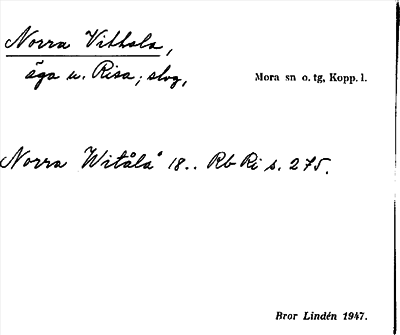 Norra Vithola,
äga u. Risa; slog,
Mora sn o. tg, Kopp. l.
Norra Witåla° 18.. Rb Ri s. 275.
Bror Lindén 1947.